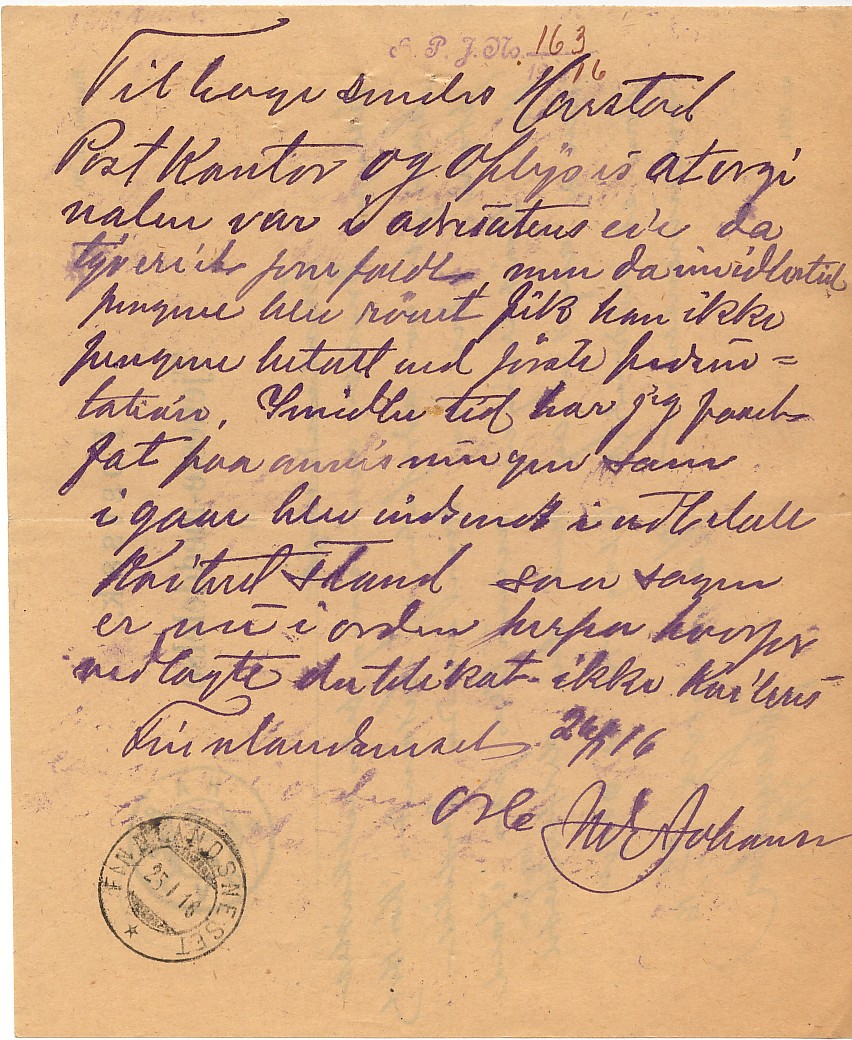 S. P. J. No. 163
19 16
Tilbage sendes Harstad
Post Kontor og oplyses at orgi
nalen var i adresatens eie da
tyveriet forefaldt, men da imidlertid
pengene blev rövet fik han ikke
pengene betalt ved förste presen=
tation, Imidlertid har jeg faaet
fat paa anvisningen som
i gaar blev indsendt i udbetalt
Kvitteret Stand saa sagen
er nu i orden herpaa hvorfor
vedlagte dublikat ikke Kvitteres
Finnlandsneset 26/1 16
Ole
Johansen
orden
FINNLANDSNESET
25 I 16